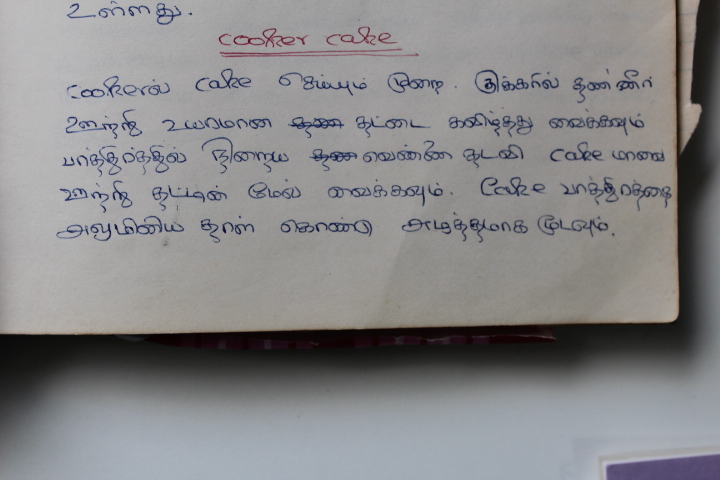 உள்ளது.
cooker cake
cookerல் cake செய்யும் முறை. குக்கரில் தண்ணீர்
ஊற்றி உயரமான தட்டை கவிழ்த்து வைக்கவும்
பாத்திரத்தில் நிறைய வெண்ணெ தடவி cake மாவை
ஊற்றி தட்டின் மேல் வைக்கவும். Cake பாத்திரத்தை
அலுமினிய தாள் கொண்டு அழுத்தமாக மூடவும்.